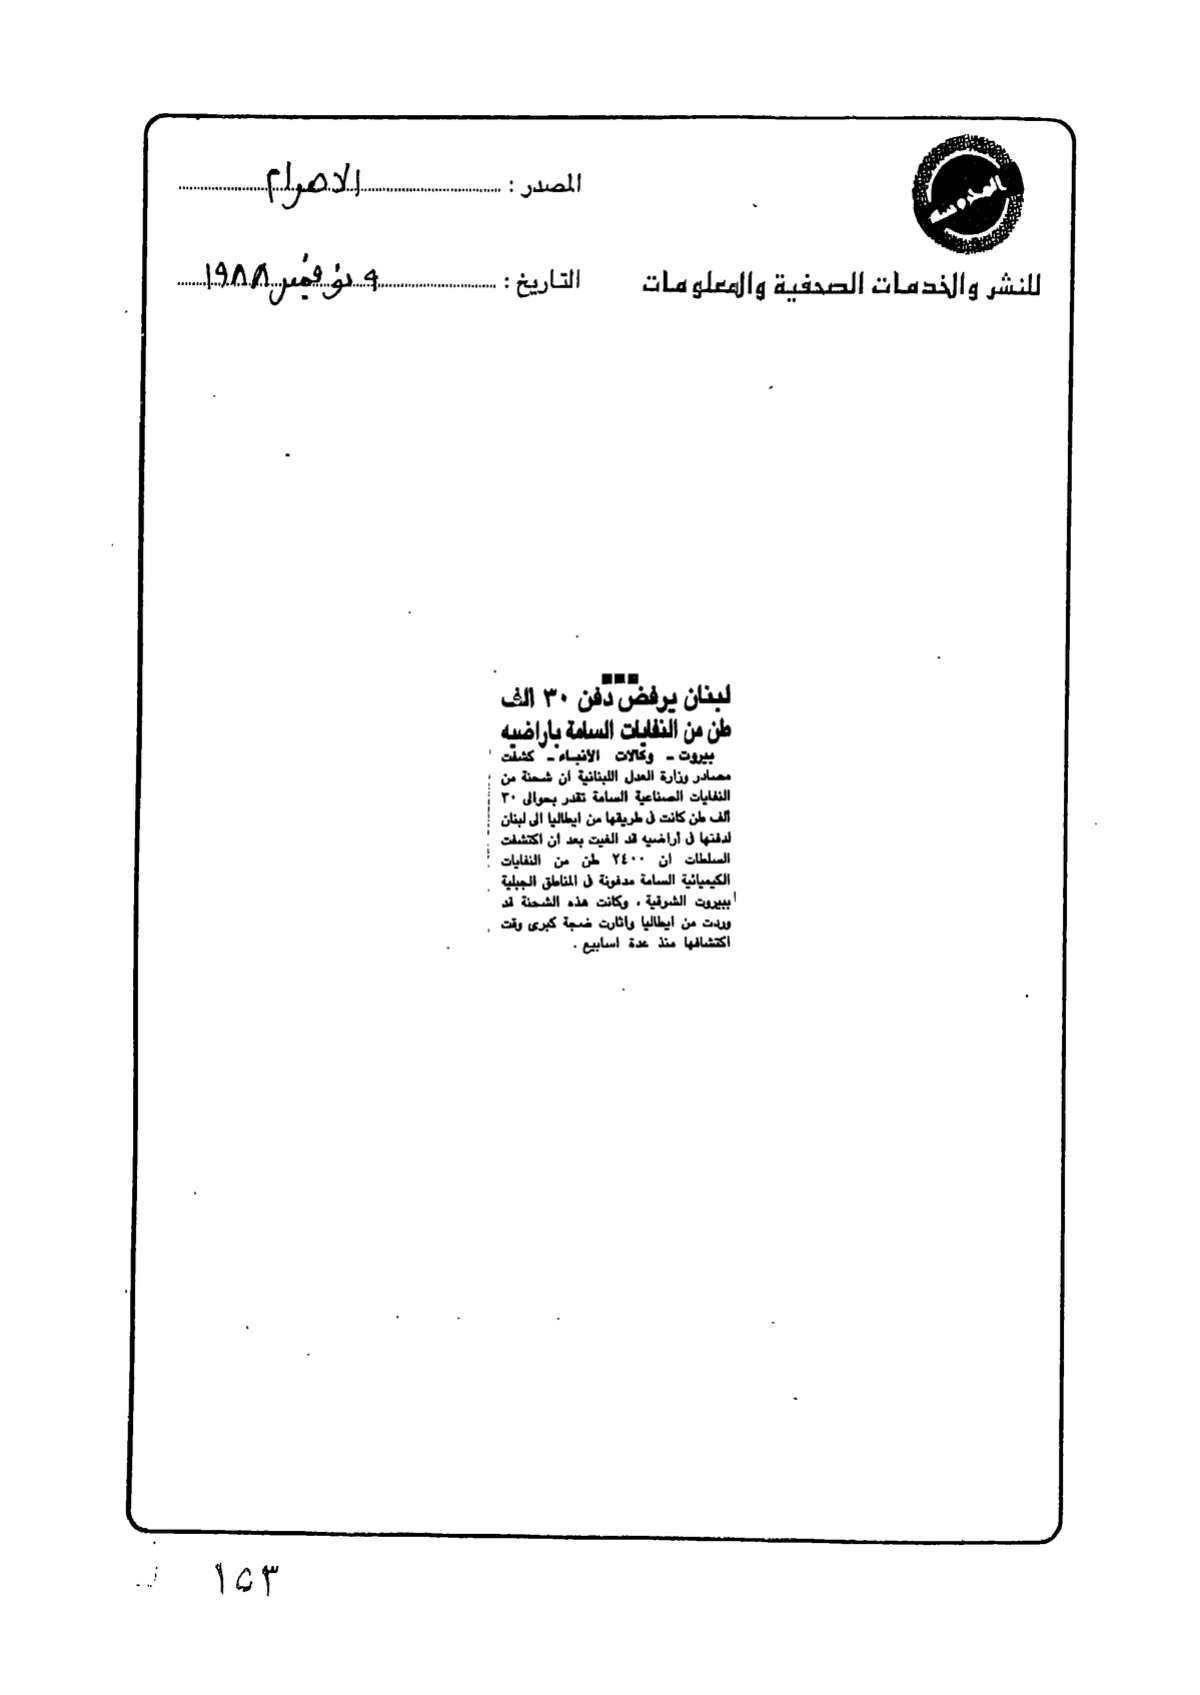 المحروسة
للنشر والخدمات الصحفية والمعلومات
المصدر : الاهرام
التاريخ : ٩ نوفمبر ١٩٨٨
لبنان يرفض دفن ٣٠ الف
طن من النفايات السامة باراضيه
بيروت ـ وكالات الأنباء ـ كشفت
مصادر وزارة العدل اللبنانية أن شحنة من
النفايات الصناعية السامة تقدر بحوالى ٣٠
ألف طن كانت فى طريقها من ايطاليا الى لبنان
لدفنها فى أراضيه قد الغيت بعد أن اكتشفت
السلطات ان ٢٤٠٠ طن من النفايات
الكيميائية السامة مدفونة فى المناطق الجبلية
ببيروت الشرقية ، وكانت هذه الشحنة قد
وردت من ايطاليا واثارت ضجة كبرى وقت
اكتشافها منذ عدة اسابيع .
١٥٣